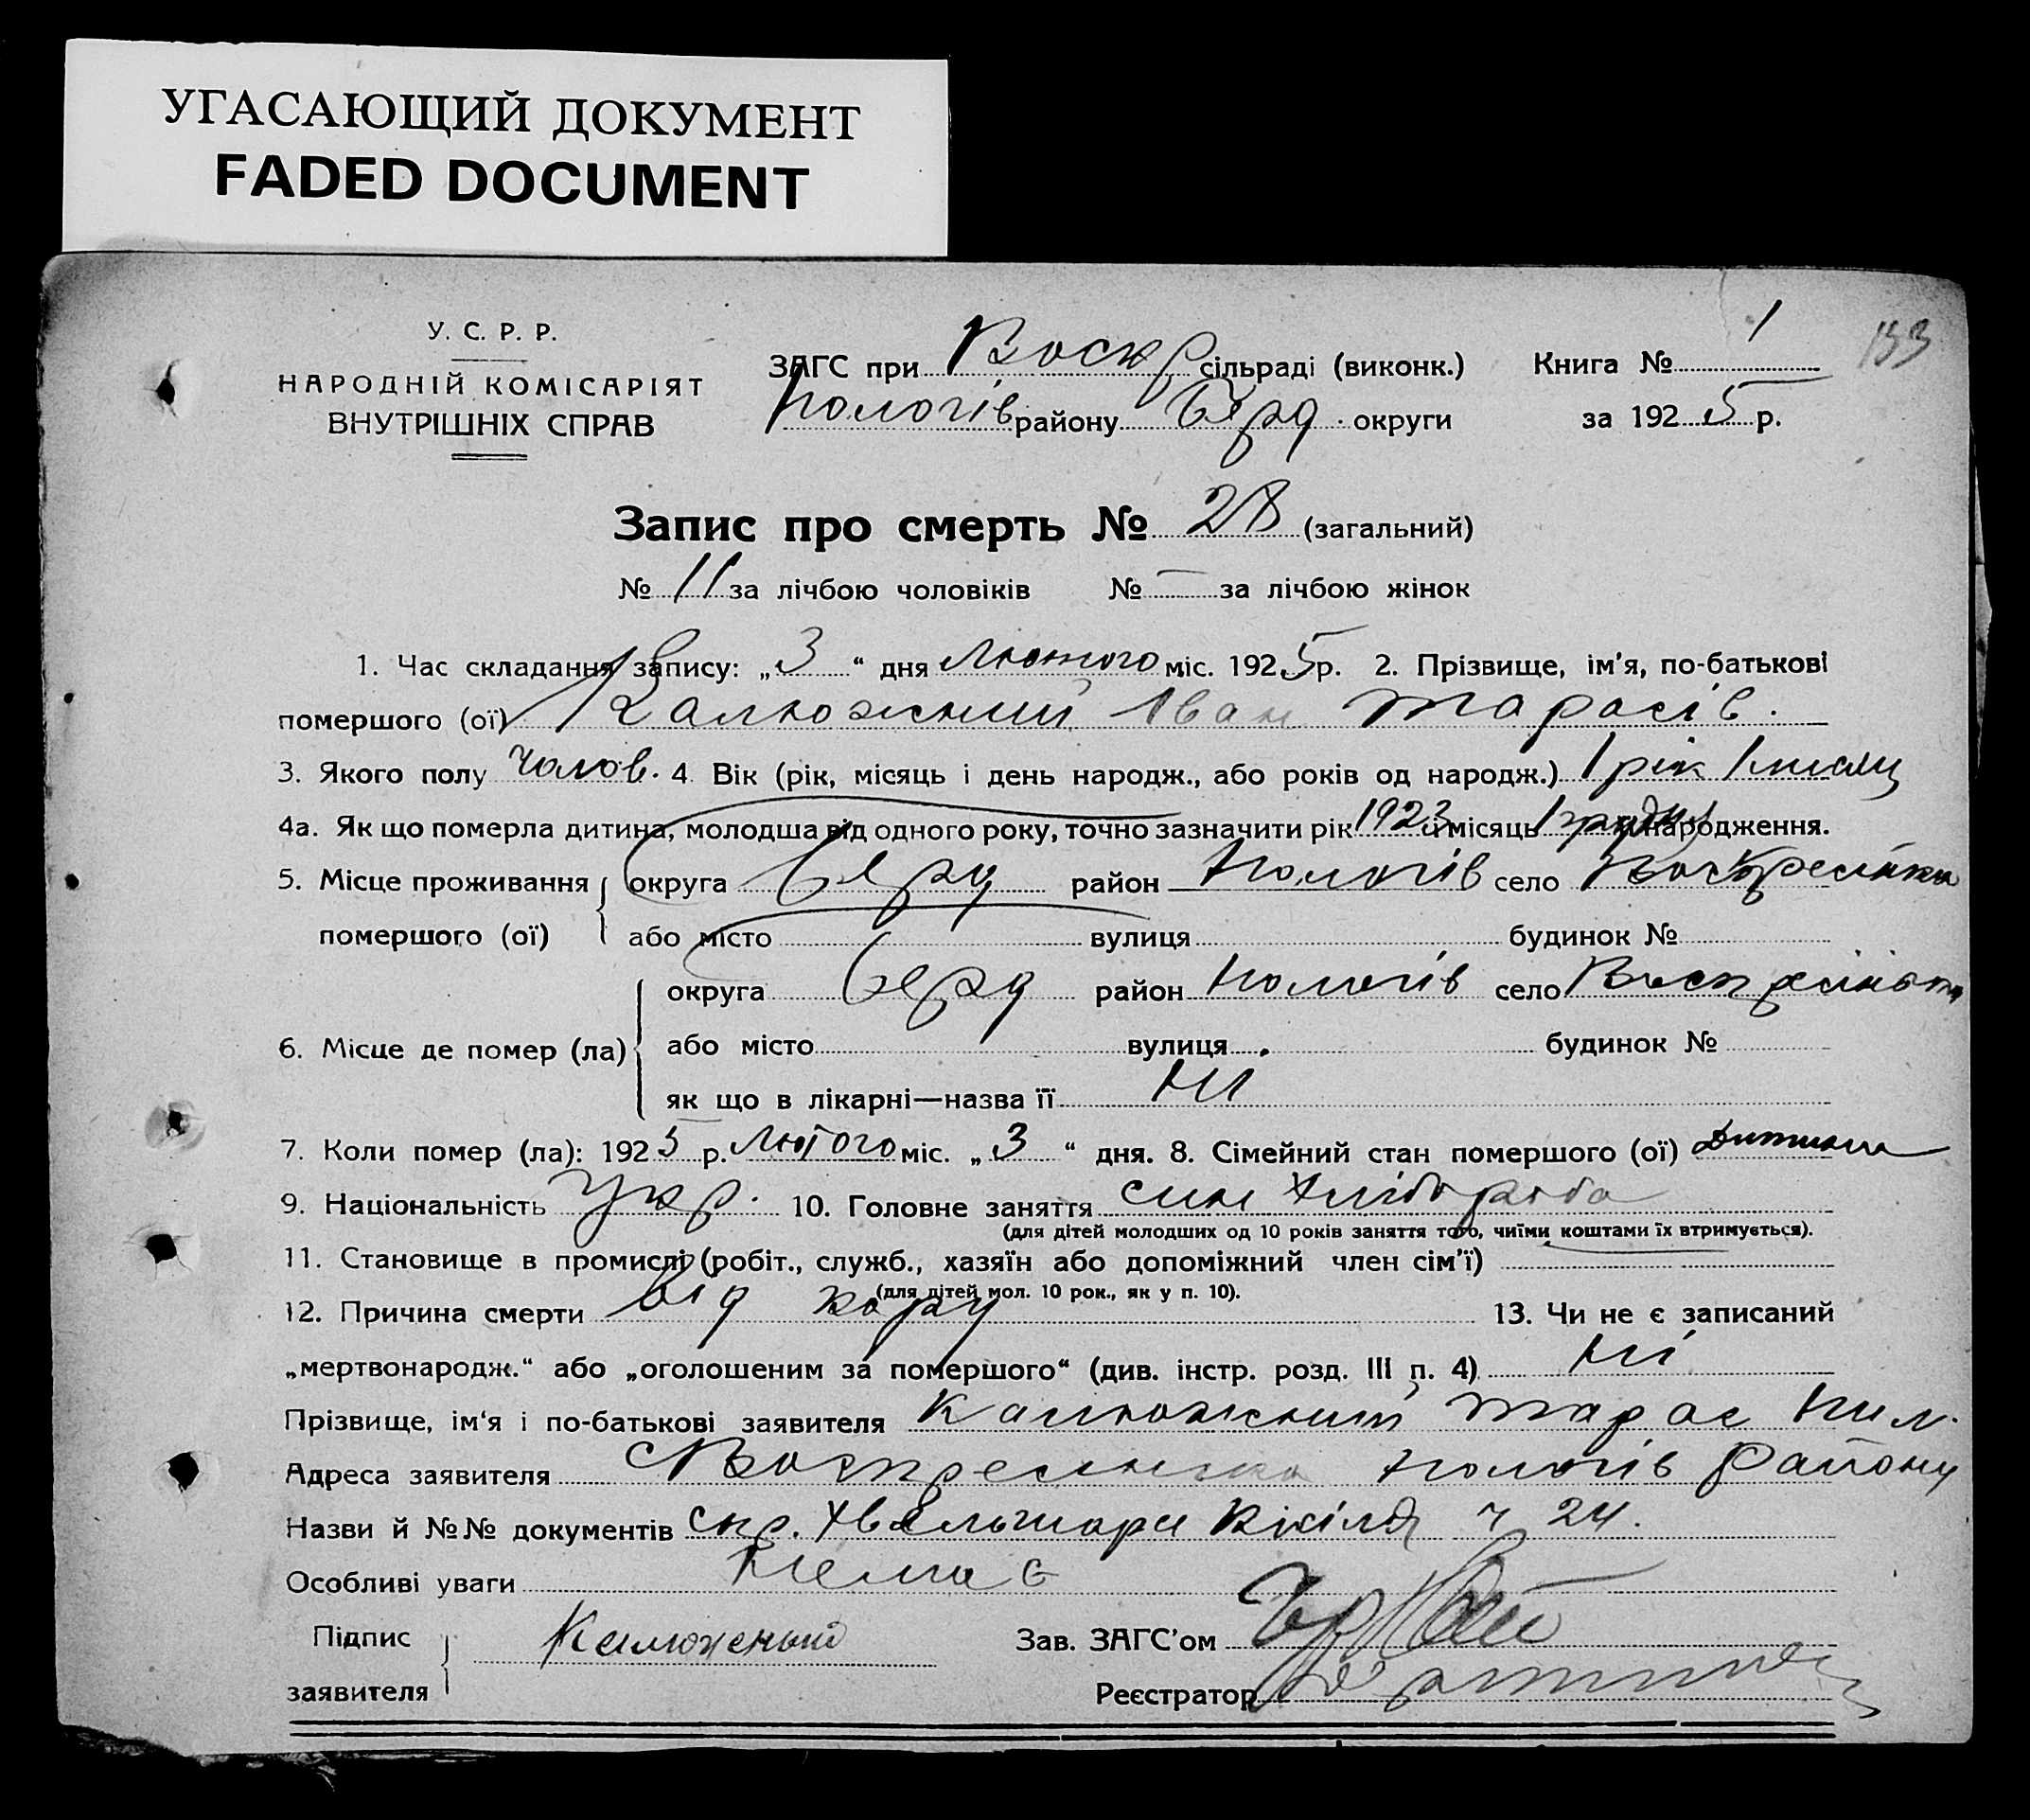 УГАСАЮЩИЙ ДОКУМЕНТ
FADED DOCUMENT
У. С. Р. Р.
НАРОДНІЙ КОМІСАРІЯТ
ВНУТРІШНІХ СПРАВ
ЗАГС при Воскр сільраді (виконк.)
Пологів району Берд. округи
Книга № 1
за 1925 р.
133
Запис про смерть № 28 (загальний)
№ 11 за лічбою чоловіків № — за лічбою жінок
1. Час складання запису: „3“ дня Лютого міс. 1925 р. 2. Прізвище, ім'я, по-батькові
помершого (ої) Калюжний Іван Тарасів.
3. Якого полу Чолов. 4 Вік (рік, місяць і день народж., або років од народж.) 1 рік 1 місяц
4а. Як що померла дитина, молодша від одного року, точно зазначити рік 1923 й місяць 1 грудня народження.
5. Місце проживання помершого (ої) округа Берд район Пологів село Воскресінка
або місто вулиця будинок №
6. Місце де помер (ла) округа Берд район Пологів село Воскресінька
або місто вулиця будинок №
як що в лікарні—назва її Ні
7. Коли помер (ла): 1925 р. Лютого міс. „3“ дня. 8. Сімейний стан помершого (ої) Дитина
9. Національність Укр. 10. Головне заняття син Хлібороба
(для дітей молодших од 10 років заняття того, чиїми коштами їх втримується).
11. Становище в промислі (робіт., служб., хазяїн або допоміжний член сім'ї)
(для дітей мол. 10 рок., як у п. 10).
12. Причина смерти від кору 13. Чи не є записаний
„мертвонародж.“ або „оголошеним за помершого“ (див. інстр. розд. III п. 4) Ні
Прізвище, ім'я і по-батькові заявителя Калюжний Тарас Пил.
Адреса заявителя Воскресенка Пологів Району
Назви й №№ документів Спр. ч 24.
Особливі уваги Немає
Підпис заявителя Калюжный Зав. ЗАГС'ом
Реєстратор